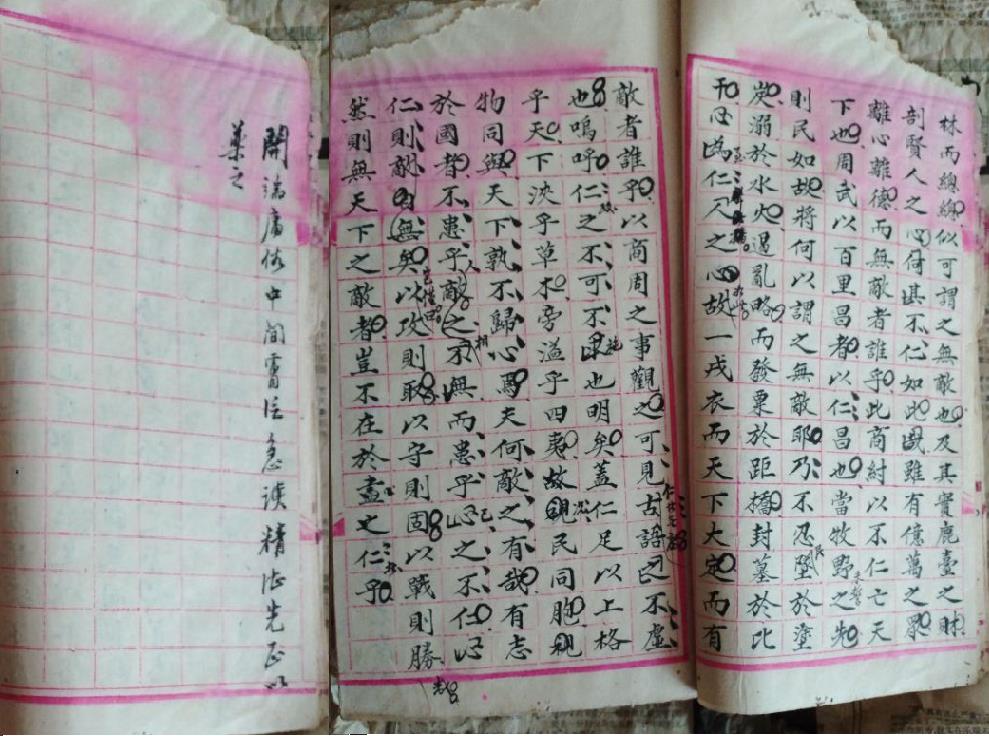 林而總總似可謂之無敵也及其實鹿臺之財
剖賢人之心何其不仁如此哉雖有億萬之眾
離心離德而無敵者誰乎此商紂以不仁亡天
下也周武以百里昌者以仁昌也當牧野之先
則民如故將何以謂之無敵耶乃不忍民墜於塗
炭溺於水火遏亂略而發粟於距橋封墓於比
干心為仁人之心故一戎衣而天下大定而有
敵者誰乎以商周之事觀之可見古語之不虛
也嗚呼仁之不可不施也明矣蓋仁足以上格
乎天下浹乎草木旁溢乎四夷故況民同胞
物同與天下孰不歸心焉夫何敵之有哉有志
於國者不患乎敵之不無而患乎己之不仁
仁則敵自無矣以攻則取以守則固以戰則勝
然則無天下之敵者豈不在於盡之仁乎
開端庸俗中間需注急讀精非先正以
藥之